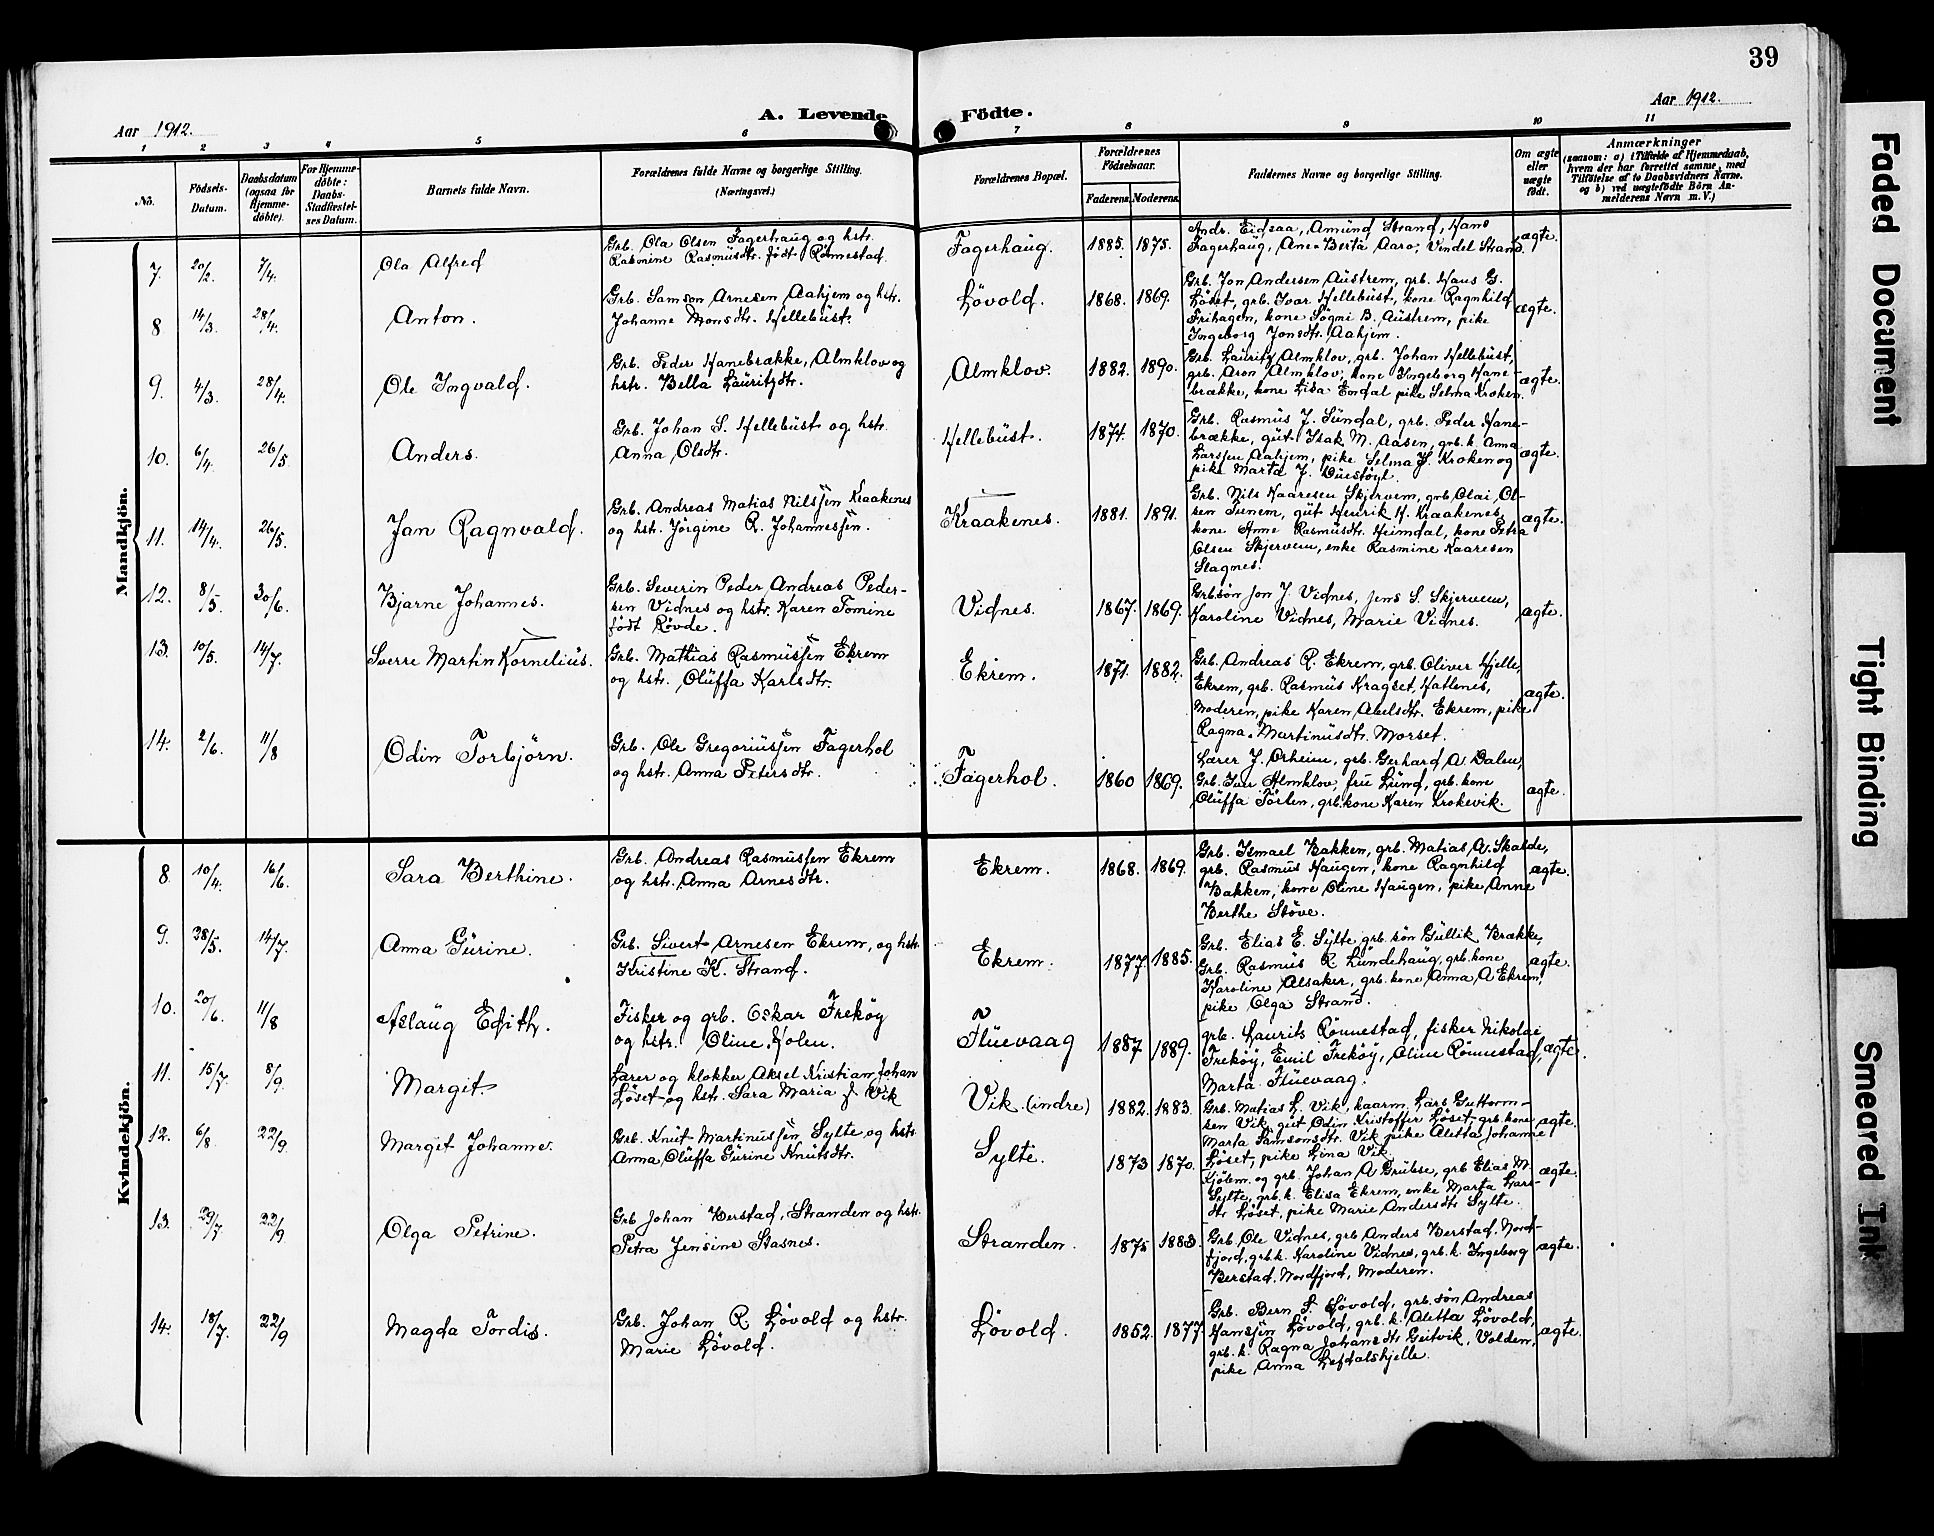 39
Aar 1912.
A. Levende Födte.
Aar 1912.
1 2 3 4 5 6 7. 8 9 10 11
No.
Födsels-
Datum.
Daabsdatum
(ogsaa for
Hjemme-
döbte).
For Hjemme-
döbte:
Daabs-
Stadfæstel-
ses Datum.
Barnets fulde Navn.
Forældrenes fulde Navne og borgerlige Stilling.
(Næringsvei.)
Forældrenes Bopæl.
Forældrenes
Födselsaar.
Faderens. Moderens.
Faddernes Navne og borgerlige Stilling.
Om ægte
eller
uægte
født.
Anmærkninger
(saasom: a) i Tilfælde af Hjemmedaab,
hvem der har forrettet samme, med
Tilföielse af to Daabsvidners Navne.
og b) ved uægtefödte Börn An-
melderens Navn m. V.)
Mandkjön.
7. 20/2. 7/4.
Ola Alfred
Grb. Ola Olsen Fagerhaug og hstr.
Rasmine Rasmusdtr. født Rönnestad.
Fagerhaug. 1885. 1875.
Andr. Eidsaa, Amund Strand, Hans
Fagerhaug, Ane Berta Aarö, Vindel Strand.
ægte.
8 14/3. 28/4.
Anton.
Grb. Samson Arnesen Aahjem og hstr.
Johanne Monsdtr. Hellebust.
Lövold. 1868. 1869.
Grb. Jon Andersen Austrem, grb. Hans G.
Löset, grb. Ivar Hellebust, kone Ragnhild
Frihagen, kone Sögni B. Austrem, pike
Ingeborg Jonsdtr. Aahjem.
ægte.
9. 4/3. 28/4.
Ole Ingvald.
Grb. Peder Hanebrække, Almklov og
hstr. Bella Lauritzdtr.
Almklov. 1882. 1890.
Grb. Lauritz Almklov, grb. Johan Hellebust,
grb. Aron Almklov, kone Ingeborg Hane-
brække, kone Lisa Endal pike Selma Kroken.
ægte.
10. 6/4. 26/5.
Anders.
Grb. Johan S. Hellebust og hstr.
Anna Olsdtr.
Hellebust. 1874. 1870.
Grb. Rasmus J. Sundal, grb. Peder Hane-
brække, gut Isak M. Aasen, grb. k. Anna
Larssen Aahjem, pike Selma H. Kroken og
pike Marta J.
ægte.
11. 14/4. 26/5.
Jan Ragnvald.
Grb. Andreas Matias Nilssen Kraakenes
og hstr. Jörgine R. Johannessen.
Kraakenes. 1881. 1891.
Grb. Nils Kaaresen Skjervem, grb. Olai Ol-
sen Tunem, gut Henrik H. Kraakenes,
kone Anne Rasmusdtr. Heimdal, kone Petra
Olsen Skjervem, enke Rasmine Kaaresen
Slagnes.
ægte.
12. 8/5. 30/6.
Bjarne Johannes.
Grb. Severin Peder Andreas Peder-
sen Vidnes og hstr. Karen Tomine
født Rövde.
Vidnes. 1867. 1869.
Grbsön Jon J. Vidnes, Jens S. Skjervem,
Karoline Vidnes, Marie Vidnes.
ægte.
13. 10/5. 14/7.
Sverre Martin Kornelius.
Grb. Mathias Rasmussen Ekrem
og hstr. Oluffa Karlsdtr.
Ekrem. 1871. 1882.
Grb. Andreas R. Ekrem, grb. Oliver Hjelle,
Ekrem, grb. Rasmus Kragset, Hatlenes,
Moderen, pike Karen Abelsdtr. Ekrem, pike
Ragna Martinusdtr. Morset.
ægte.
14. 2/6. 11/8
Odin Torbjörn.
Grb. Ole Gregoriussen Fagerhol
og hstr. Anna Petersdtr.
Fagerhol. 1860 1869.
Lærer J. Orheim, grb. Gerhard A. Dalen,
Grb. Iver Almklov, fru Lund, grb. kone
Oluffa Törlen, grb. kone Karen Krokevik.
ægte.
Kvindekjön.
8. 10/4. 16/6.
Sara Berthine.
Grb. Andreas Rasmussen Ekrem
og hstr. Anna Arnesdtr.
Ekrem. 1868. 1869.
Grb. Ismael Bakken, grb. Matias A. Skarde,
grb. Rasmus Haugen, kone Ragnhild
Bakken, kone Oline Haugen, pike Anne
Berthe Stöve.
ægte.
9. 28/5. 14/7.
Anna Gurine.
Grb. Sivert Arnesen Ekrem, og hstr.
Kristine K. Strand.
Ekrem. 1877 1885.
Grb. Elias E. Sylte, grb. sön Gullik Brække,
Grb. Rasmus R. Lundehaug, grb. kone
Karoline Alsaker, grb. kone Anna A. Ekrem,
pike Olga Strand.
ægte.
10. 20/6. 11/8
Aslaug Edith.
Fisker og grb. Oskar Freköy
og hstr. Oline Holen.
Fluevaag 1887 1889.
grb. Laurits Rönnestad, fisker Nikolai
Freköy, Emil Freköy, Oline Rönnestad,
Marta Fluevaag.
ægte.
11. 15/7. 8/9.
Margit.
Lærer og klokker Aksel Kristian Johan
Löset og hstr. Sara Maria f. Vik
Vik (indre) 1882. 1883.
Grb. Matias L. Vik, kaarm. Lars Guttorm-
sen Vik, gut Odin Kristoffer Löset, grb. kone
Marta Samsonsdtr. Vik pike Aletta Johanne
Löset, pike Lina Vik.
ægte.
12. 6/8. 22/9.
Margit Johanne.
Grb. Knut Martinussen Sylte og hstr.
Anna Oluffa Gurine Knutsdtr.
Sylte. 1873 1870.
Kjölem. og grb. Johan A. Grubse, grb Elias M.
Sylte, grb. k. Elisa Ekrem, enke Marta Lars-
dtr. Löset, pike Marie Andersdtr Sylte.
ægte.
13. 29/7. 22/9
Olga Petrine.
Grb Johan Berstad, Stranden og hstr.
Petra Jensine Stasnes.
Stranden. 1875 1883.
Grb. Ole Vidnes, grb Anders Berstad, Nord-
fjord, grb. k. Karoline Vidnes, grb. k. Ingeborg
Berstad, Nordfjord, Moderen.
ægte.
14. 18/7. 22/9
Magda Tordis.
Grb. Johan R. Lövold og hstr.
Marie Lövold.
Lövold. 1852. 1877
Grb. Bern S. Lövold, grb. sön Andreas
Hanssen Lövold, grb. k. Aletta Lövold,
grb. k. Ragna Johansdtr. Geitvik, Volden,
pike Anna Lefdalshjelle.
ægte.
Faded Document
Tight Binding
Smeared Ink